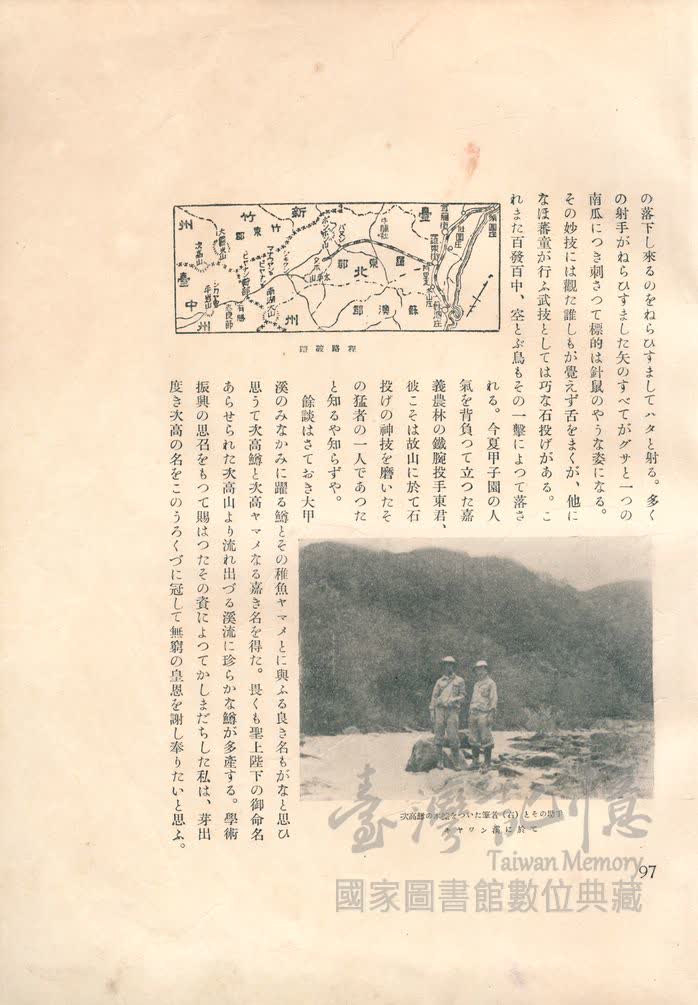 の落下し來るのをねらひすましてハタと射る。多く
の射手がねらひすました矢のすべてがグサと一つの
南瓜につき刺さつて標的は針鼠のやうな姿になる。
その妙技には觀た誰しもが覺えず舌をまくが、他に
なほ蕃童が行ふ武技としては巧な石投げがある。こ
れまた百發百中、空とぶ鳥もその一擊によつて落さ
れる。今夏甲子園の人
氣を背負つて立つた嘉
義農林の鐵腕投手東君、
彼こそは故山に於て石
投げの神技を磨いたそ
の猛者の一人であつた
と知るや知らずや。
餘談はさておき大甲
溪のみなかみに躍る鱒とその稚魚ヤマメとに與ふる良き名もがなと思ひ
思うて次高鱒と次高ヤマメなる嘉き名を得た。畏くも聖上陛下の御命名
あらせられた次高山より流れ出づる溪流に珍らかな鱒が多產する。學術
振興の思召をもつて賜はつたその資によつてかしまだちした私は、芽出
度き次高の名をこのうろくづに冠して無窮の皇恩を謝し奉りたいと思ふ。
新竹州
竹東郡
臺北州
羅東郡
蘇澳郡
臺中州
次高山
南湖大山
羅東街
程路破踏
キヤワン溪に於て
臺灣記憶
Taiwan Memory
國家圖書館數位典藏
97